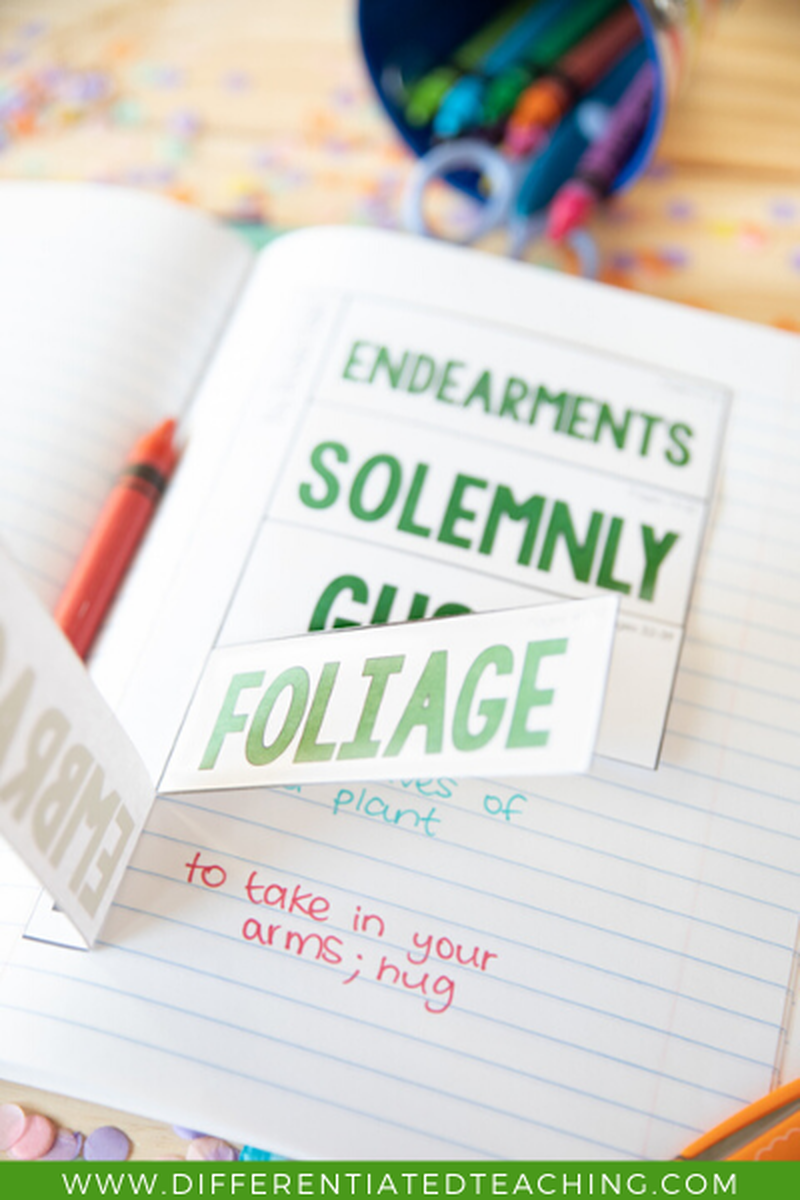 ENDEARMENTS
SOLEMNLY
FOLIAGE
of
plant
to take in your
arms; hug
WWW.DIFFERENTIATEDTEACHING.COM